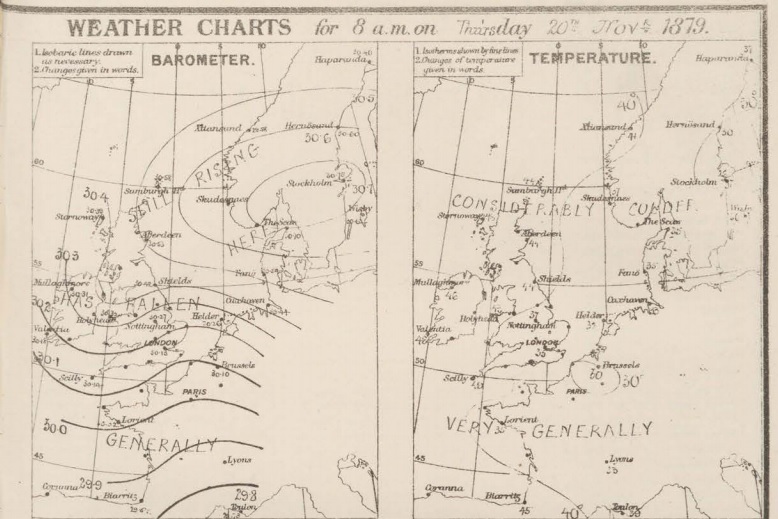 WEATHER CHARTS for 8 a.m. on Thursday 20th Novr 1879.
1. Isobaric lines drawn
as necessary.
2. Changes given in words.
BAROMETER.
0 5 10
Haparanda
30.5
Xtiansund
Hernösand
30.6
RISING
60
30.4
Sumburgh Hd
Stockholm
30.7
STILL
Skudesnaes
Stornoway
The Scaw
Wisby
Aberdeen
HERE
30.3
55
Fanö
Mullaghmore
Shields
30.2
HAS FALLEN
Cuxhaven
Holyhead
Helder
Nottingham
Valentia
LONDON
30.1
50
Brussels
Scilly
PARIS
Lorient
30.0
GENERALLY
45
Lyons
Corunna
29.9
29.8
Biarritz
Toulon
1. Isotherms shown by fine lines
2. Changes of temperature
given in words.
TEMPERATURE.
0 5 10
Haparanda
30°
40°
Xtiansund
Hernösand
60
Sumburgh Hd
Stockholm
Skudesnaes
CONSIDERABLY
Stornoway
The Scaw
Aberdeen
55
Fanö
Mullaghmore
Shields
Cuxhaven
Holyhead
Helder
Nottingham
Valentia
LONDON
50
Brussels
30°
Scilly
PARIS
Lorient
VERY GENERALLY
45
Lyons
Corunna
Biarritz
45
40°
Toulon